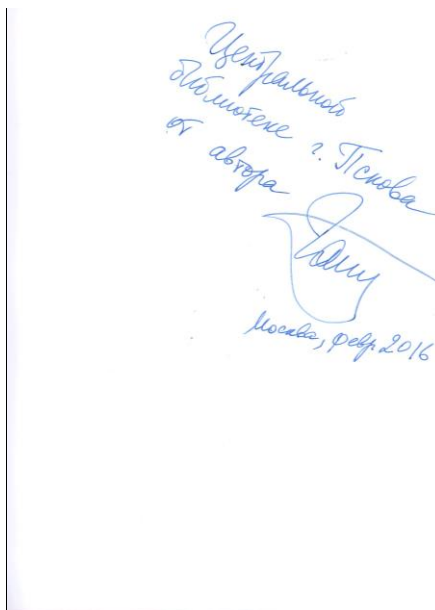 Центральной
библиотеке г. Пскова
от автора
Москва, февр. 2016